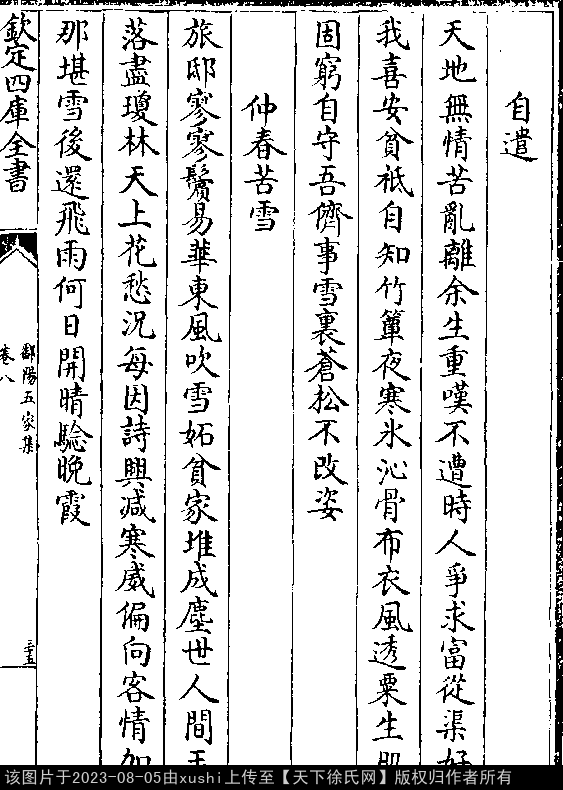 自遣
天地無情苦亂離余生重嘆不遭時人爭求富從渠好
我喜安貧祗自知竹簟夜寒氷沁骨布衣風透粟生肌
固窮自守吾儕事雪裏蒼松不改姿
仲春苦雪
旅邸寥寥鬢易華東風吹雪妬貧家堆成塵世人間玉
落盡瓊林天上花愁況每因詩興減寒威偏向客情加
那堪雪後還飛雨何日開晴騐晚霞
欽定四庫全書
鄱陽五家集
卷八
三五
该图片于2023-08-05由xushi上传至【天下徐氏网】版权归作者所有